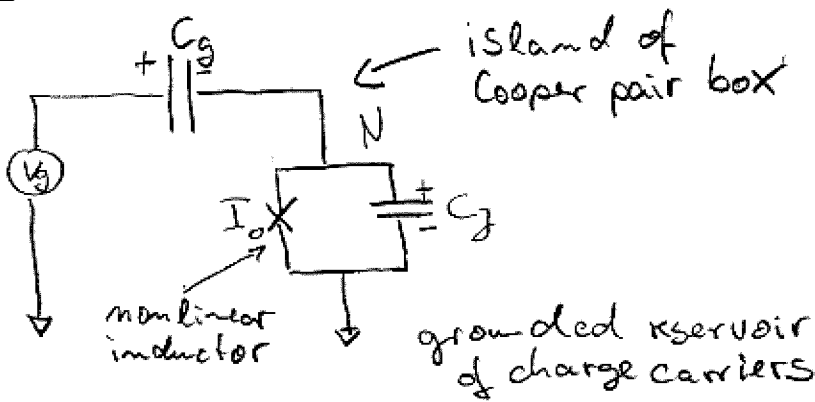 Cg
+
-
island of
Cooper pair box
N
Vg
I₀
+
-
CJ
nonlinear
inductor
grounded reservoir
of charge carriers